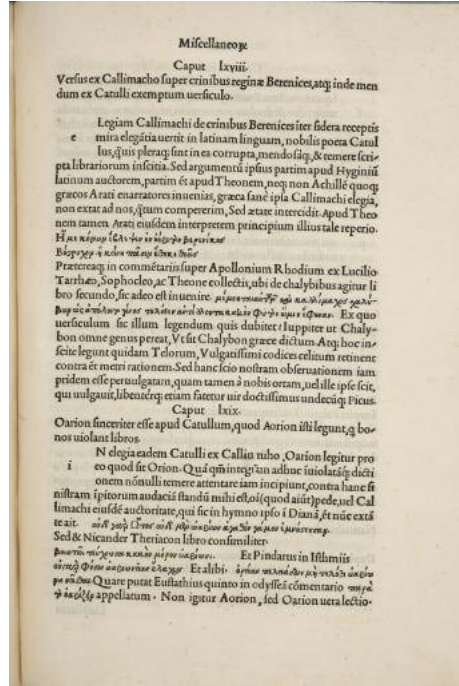 Miscellaneoꝝ
Caput lxviii.
Versus ex Callimacho super crinibus reginæ Berenices, atq; inde men
dum ex Catulli exemptum uersiculo.
e
Legiam Callimachi de crinibus Berenices īter sidera receptis
mira elegātia uertit in latinam linguam, nobilis poeta Catul
lus, q̃uis pleraq; sint in ea corrupta, mendosaq;, & temere scri-
pta librariorum inscitia. Sed argumentū ipsius partim apud Hyginiū
latinum auctorem, partim ēt apud Theonem, neq; non Achillē quoq;
græcos Arati enarratores inuenias, græca sanē ipsa Callimachi elegia,
non extat ad nos, q̃tum compererim, Sed ætate intercidit. Apud Theo
nem tamen Arati eiusdem interpretem principium illius tale reperio.
Prætereaq; in commētariis super Apollonium Rhodium ex Lucilio
Tarrhæo, Sophocleo, ac Theone collectis, ubi de chalybibus agitur li
bro secundo, sic adeo est inuenire.
Ex quo
uersiculum sic illum legendum quis dubitet? Iuppiter ut Chaly-
bon omne genus pereat, Vt sit Chalybon græce dictum. Atq; hoc in-
scite legunt quidam Telorum, Vulgatissimi codices celitum retinent
contra ēt metri rationem. Sed hanc scio nostram obseruationem iam
pridem esse peruulgatam, quam tamen à nobis ortam, uel ille ipse scit,
qui uulgauit, libenterq; etiam fatetur uir doctissimus undecūq; Picus.
Caput lxix.
Oarion sinceriter esse apud Catullum, quod Aorion isti legunt, q bo-
nos uiolant libros.
i
N elegia eadem Catulli ex Calli
Oarion legitur pro
eo quod sit Orion. Quā
adhuc
dicti
onem nōnulli temere attentare iam incipiunt, contra hanc si
nistram īpitorum audaciā standū mihi est, oi (quod aiūt) pede, uel Cal
limachi eiusdē auctoritate, qui sic in hymno ipso ī Dianā, ēt nūc extā
te ait.
Sed & Nicander Theriacon libro consimiliter.
Et Pindarus in Isthmiis
Et alibi.
Quare putat Eustathius quinto in odysseā cōmentario
appellatum. Non igitur Aorion, sed Oarion uera lectio.